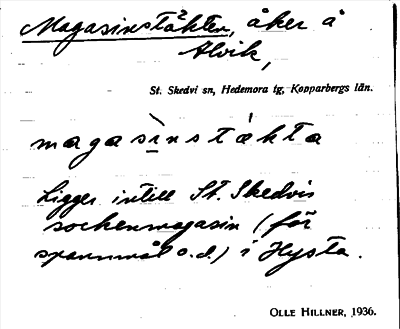 Magasinstäkten, åker å
Alvik,
St. Skedvi sn, Hedemora tg, Kopparbergs län.
magasìnstàkta
Ligger intill St. Skedvis
sockenmagasin (för
spannmål o.d.) i Hysta.
OLLE HILLNER, 1936.